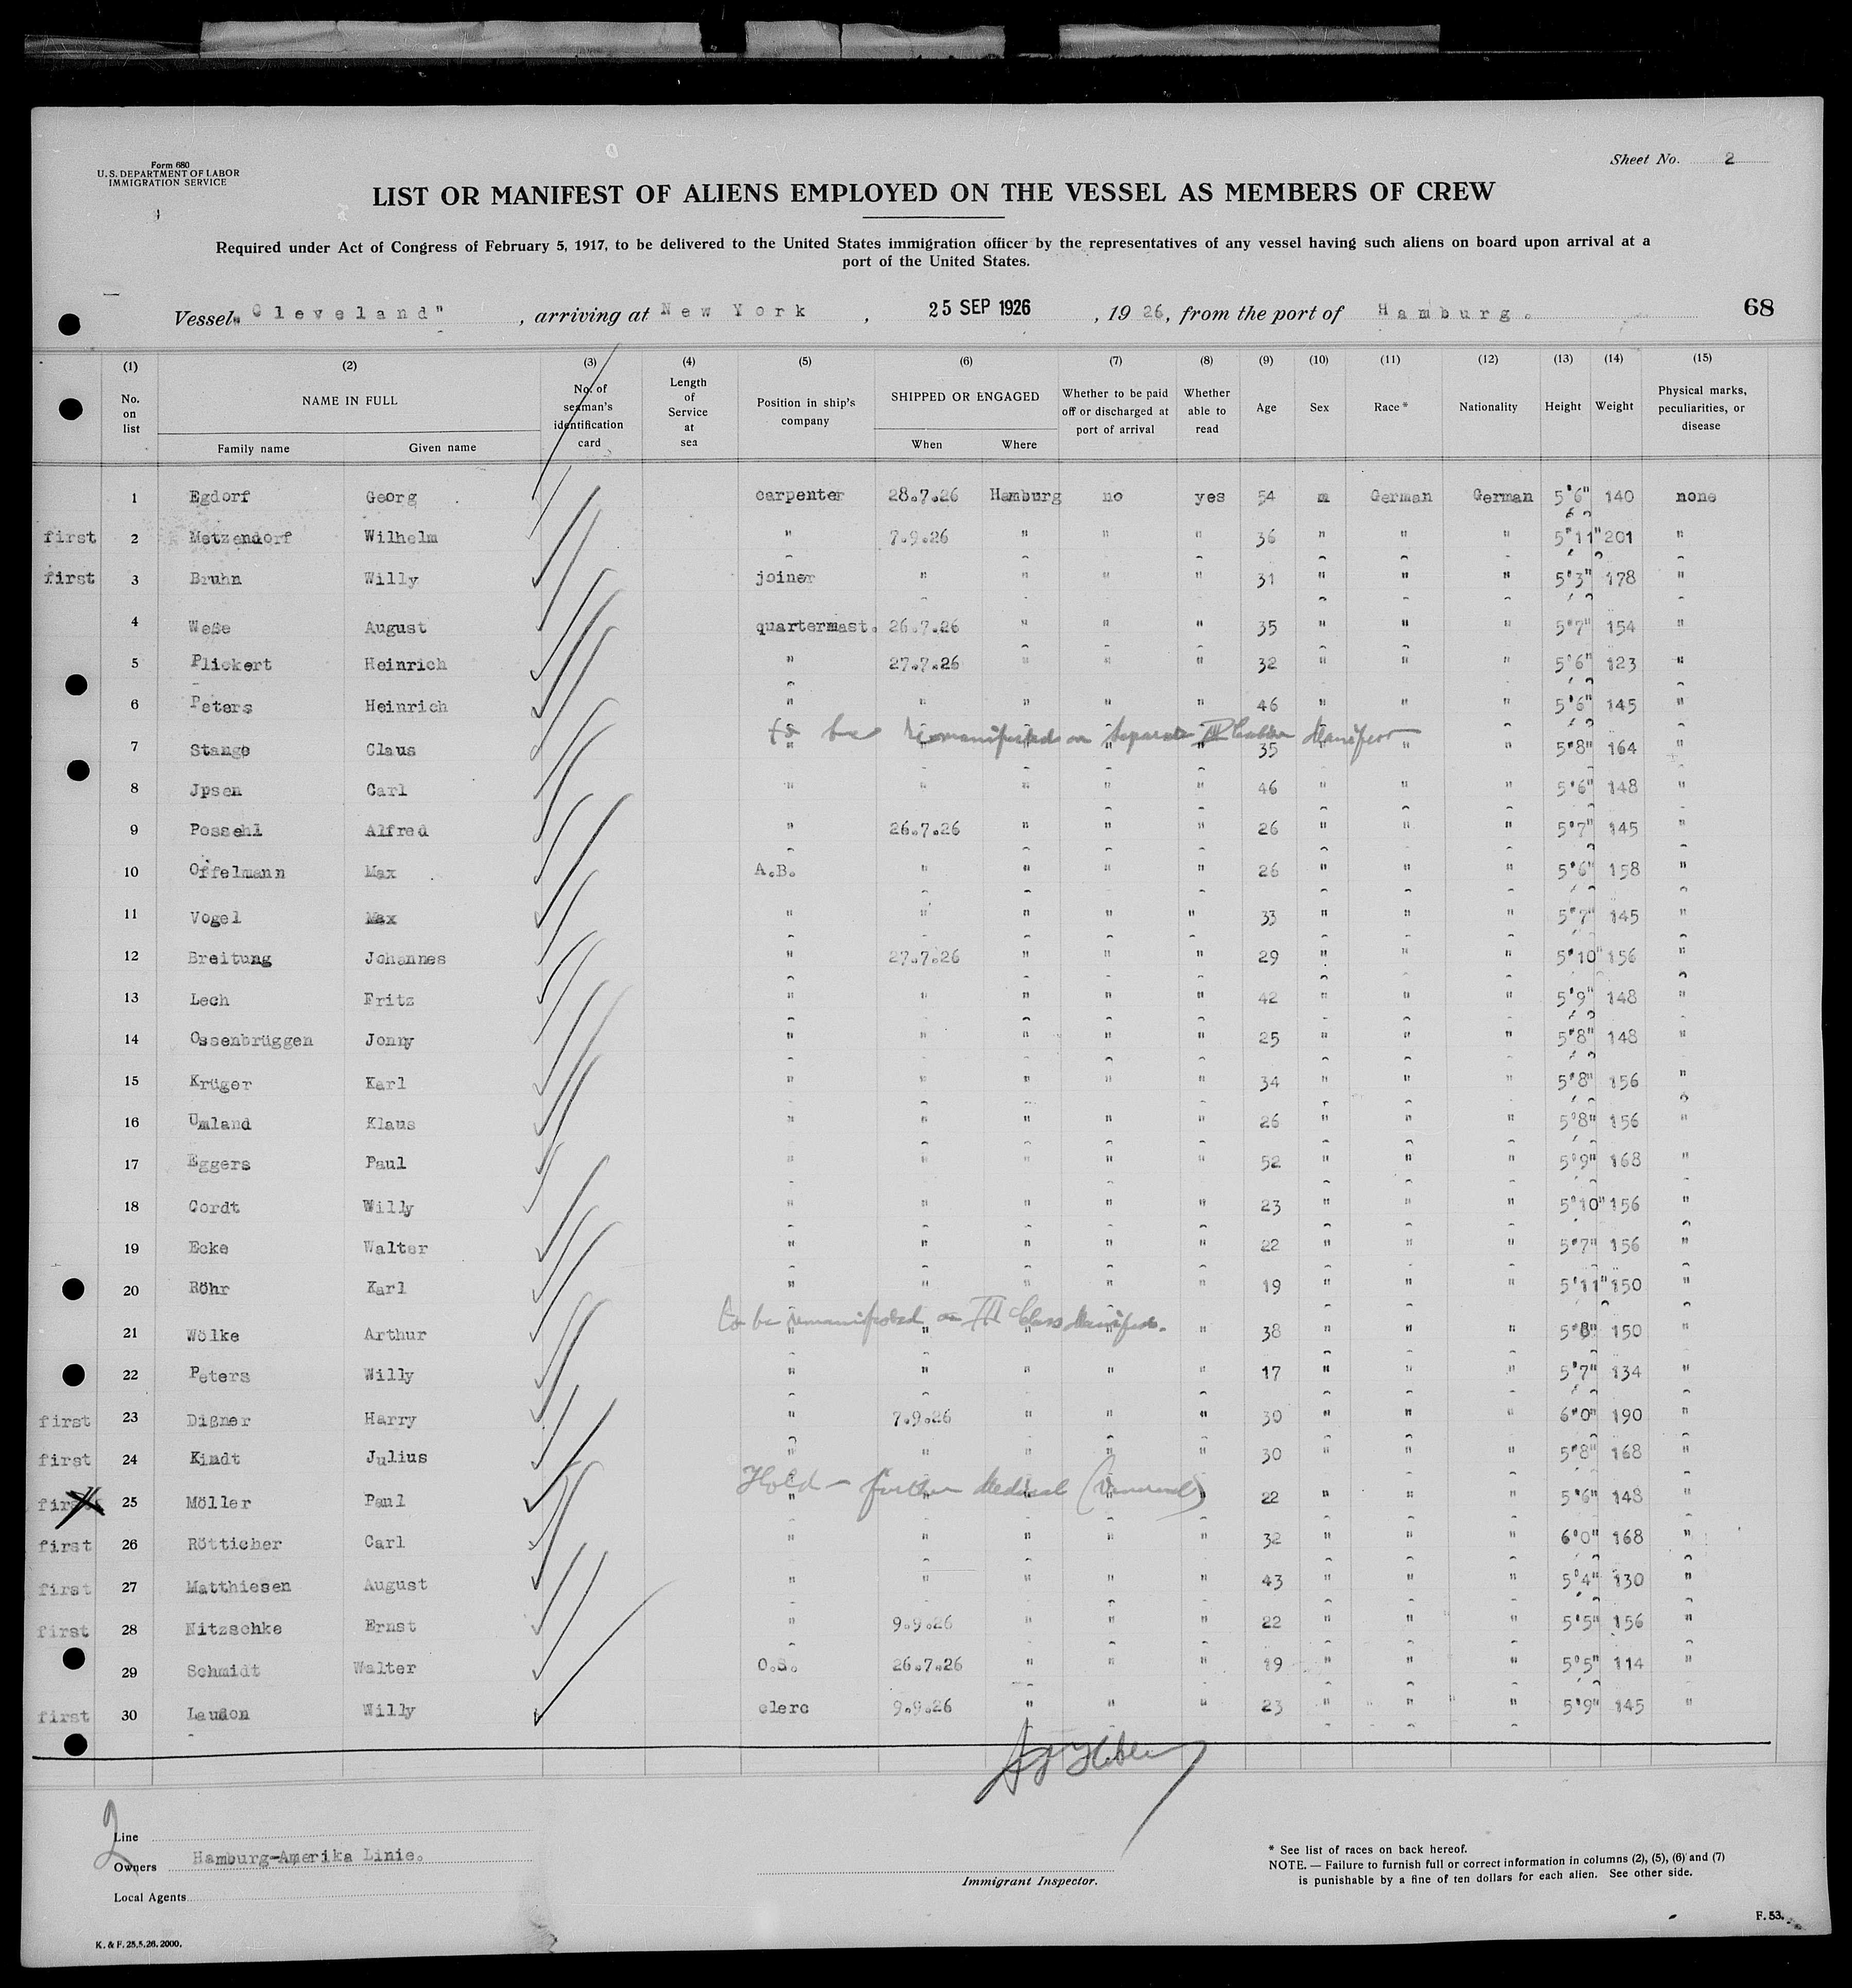 Form 680
U. S. DEPARTMENT OF LABOR
IMMIGRATION SERVICE
Sheet No. 2
LIST OR MANIFEST OF ALIENS EMPLOYED ON THE VESSEL AS MEMBERS OF CREW
Required under Act of Congress of February 5, 1917, to be delivered to the United States immigration officer by the representatives of any vessel having such aliens on board upon arrival at a
port of the United States.
Vessel "Cleveland", arriving at New York, 25 SEP 1926, 1926, from the port of Hamburg. 68
(1) (2) (3) (4) (5) (6) (7) (8) (9) (10) (11) (12) (13) (14) (15)
No. on list NAME IN FULL No. of seaman's identification card Length of Service at sea Position in ship's company SHIPPED OR ENGAGED Whether to be paid off or discharged at port of arrival Whether able to read Age Sex Race* Nationality Height Weight Physical marks, peculiarities, or disease
Family name Given name When Where
1 Egdorf Georg carpenter 28.7.26 Hamburg no yes 54 m German German 5'6" 140 none
first 2 Metzendorf Wilhelm " 7.9.26 " " " 36 " " " 5'11" 201 "
first 3 Bruhn Willy joiner " " " " 31 " " " 5'3" 178 "
4 Weße August quartermast. 26.7.26 " " " 35 " " " 5'7" 154 "
5 Plickert Heinrich " 27.7.26 " " " 32 " " " 5'6" 123 "
6 Peters Heinrich " " " " " 46 " " " 5'6" 145 "
to be remanifested on separate III Manifest
7 Stange Claus " " " " " 35 " " " 5'8" 164 "
8 Jpsen Carl " " " " " 46 " " " 5'6" 148 "
9 Possehl Alfred " 26.7.26 " " " 26 " " " 5'7" 145 "
10 Offelmann Max A.B. " " " " 26 " " " 5'6" 158 "
11 Vogel Max " " " " " 33 " " " 5'7" 145 "
12 Breitung Johannes " 27.7.26 " " " 29 " " " 5'10" 156 "
13 Lech Fritz " " " " " 42 " " " 5'9" 148 "
14 Ossenbrüggen Jonny " " " " " 25 " " " 5'8" 148 "
15 Krüger Karl " " " " " 34 " " " 5'8" 156 "
16 Umland Klaus " " " " " 26 " " " 5'8" 156 "
17 Eggers Paul " " " " " 52 " " " 5'9" 168 "
18 Cordt Willy " " " " " 23 " " " 5'10" 156 "
19 Ecke Walter " " " " " 22 " " " 5'7" 156 "
20 Röhr Karl " " " " " 19 " " " 5'11" 150 "
to be remanifested on III Class Manifest.
21 Wölke Arthur " " " " " 38 " " " 5'8" 150 "
22 Peters Willy " " " " " 17 " " " 5'7" 134 "
first 23 Dißner Harry " 7.9.26 " " " 30 " " " 6'0" 190 "
first 24 Kindt Julius " " " " " 30 " " " 5'8" 168 "
Hold - further Medical (Venereal)
first 25 Möller Paul " " " " " 22 " " " 5'6" 148 "
first 26 Rötticher Carl " " " " " 32 " " " 6'0" 168 "
first 27 Matthiesen August " " " " " 43 " " " 5'4" 130 "
first 28 Nitzschke Ernst " 9.9.26 " " " 22 " " " 5'5" 156 "
29 Schmidt Walter O.S. 26.7.26 " " " 19 " " " 5'5" 114 "
first 30 Willy clerc 9.9.26 " " " 23 " " " 5'9" 145 "
2
Line
Owners Hamburg-Amerika Linie.
Local Agents
Immigrant Inspector.
* See list of races on back hereof.
NOTE. — Failure to furnish full or correct information in columns (2), (5), (6) and (7)
is punishable by a fine of ten dollars for each alien. See other side.
F. 53.
K. & F. 25.5.26. 2000.